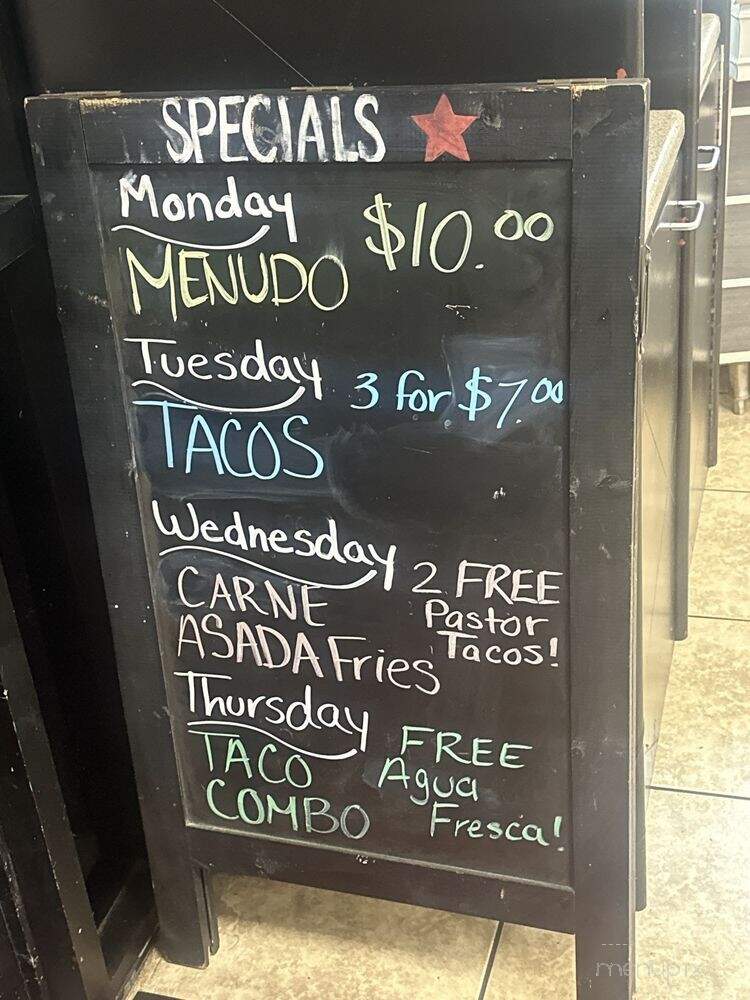 SPECIALS
Monday
MENUDO $10.00
Tuesday
TACOS 3 for $7.00
Wednesday
CARNE
ASADA Fries
2 FREE
Pastor
Tacos!
Thursday
TACO
COMBO
FREE
Agua
Fresca!